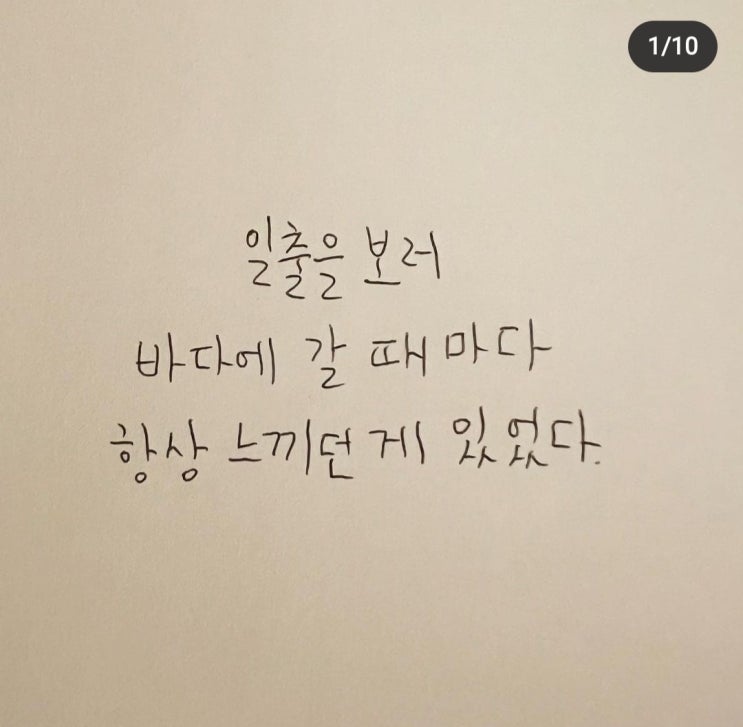 1/10
일출을 보러
바다에 갈 때마다
항상 느끼던 게 있었다.